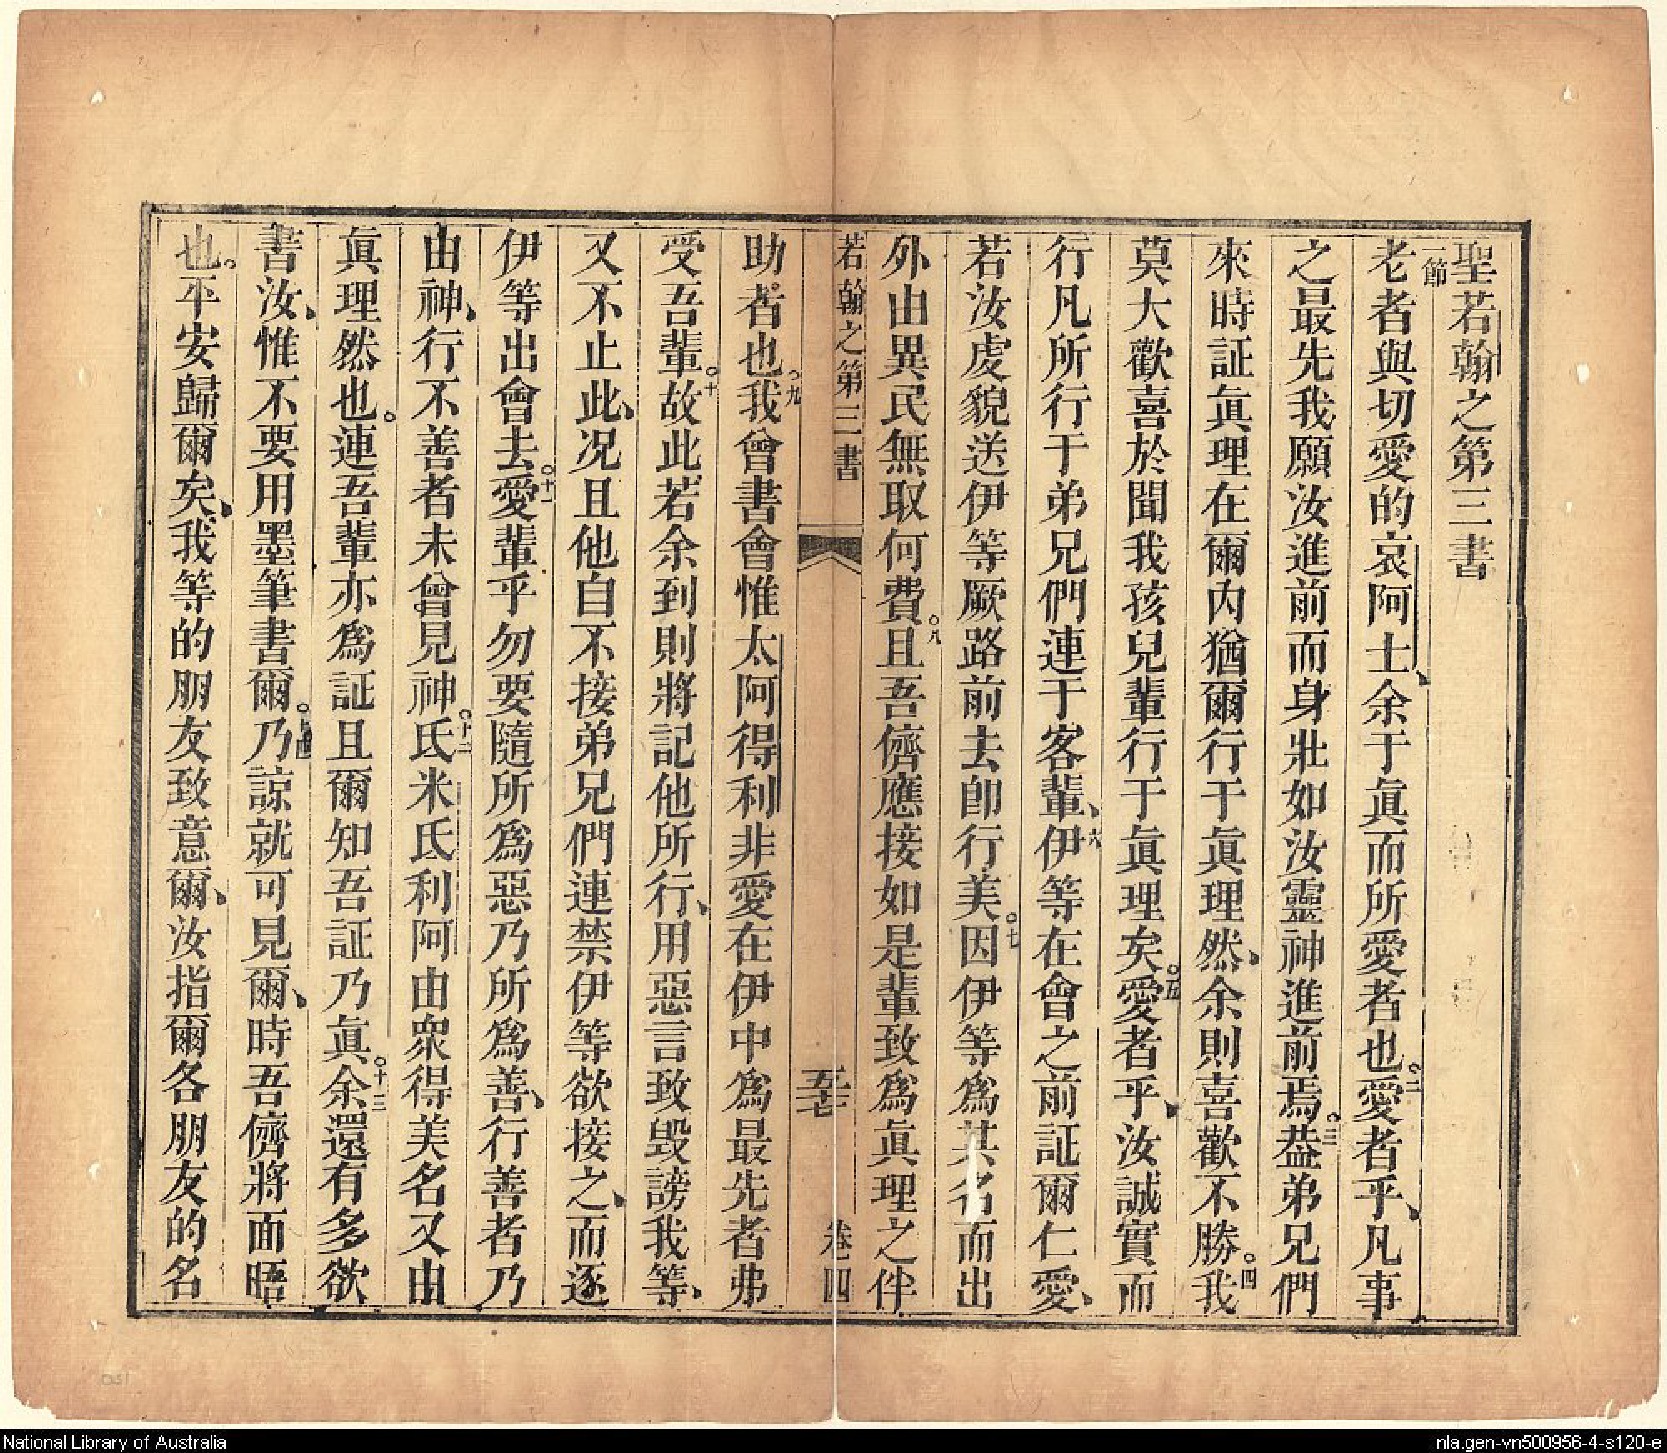 聖若翰之第三書
一節
老者與切愛的哀阿士、余于眞而所愛者也。二愛者乎、凡事
之最先我願汝進前而身壯如汝靈神進前焉。三葢弟兄們
來時証眞理在爾內猶爾行于眞理然、余則喜歡不勝。四我
莫大歡喜於聞我孩兒輩行于眞理矣。五愛者乎、汝誠實而
行凡所行于弟兄們連于客輩、六伊等在會之前証爾仁愛、
若汝虔貌送伊等厥路前去卽行美。七因伊等爲其名而出
外由異民無取何費。八且吾儕應接如是輩致爲眞理之伴
若翰之第三書
五七
卷四
助者也。九我曾書會惟太阿得利非愛在伊中爲最先者弗
受吾輩。十故此若余到則將記他所行、用惡言致毀謗我等、
又不止此、况且他自不接弟兄們連禁伊等欲接之、而逐
伊等出會去。十一愛輩乎勿要隨所爲惡乃所爲善、行善者乃
由神、行不善者未曾見神。十二氐米氐利阿由衆得美名又由
眞理然也。連吾輩亦爲証且爾知吾証乃眞。十三余還有多欲
書汝、惟不要用墨筆書爾。十四乃諒就可見爾、時吾儕將面晤
也。平安歸爾矣、我等的朋友致意爾、汝指爾各朋友的名
National Library of Australia
nla.gen-vn500956-4-s120-e